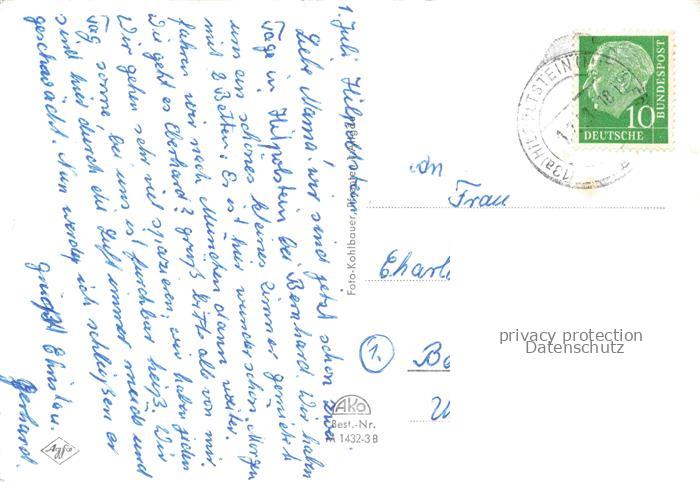 1. Juli Hilpoltstein
Liebe Mama! wir sind jetzt schon zwei
Tage in Hilpolstein bei Bernhard. Wir haben
uns ein schönes kleines Zimmer gemietet
mit 2 Betten. Es ist hier wunderschön. Morgen
fahren wir nach München dann weiter.
Wie geht es Eberhard? grüß bitte alle von mir.
Wir gehen sehr viel spazieren, wir haben jeden
Tag Sonne, bei uns ist furchtbar heiß. Wir
sind hier durch die Luft immer müde und
geschwächt. Nun werde ich schließen es
grüßt Christa u.
Gerhard.
Foto-Kohlbauer,
AKO
Best.-Nr.
M 1432-3 B
Agfa
(13a) HILPOLTSTEIN
10
DEUTSCHE
BUNDESPOST
An
Frau
Charl
1.
Be
privacy protection
Datenschutz